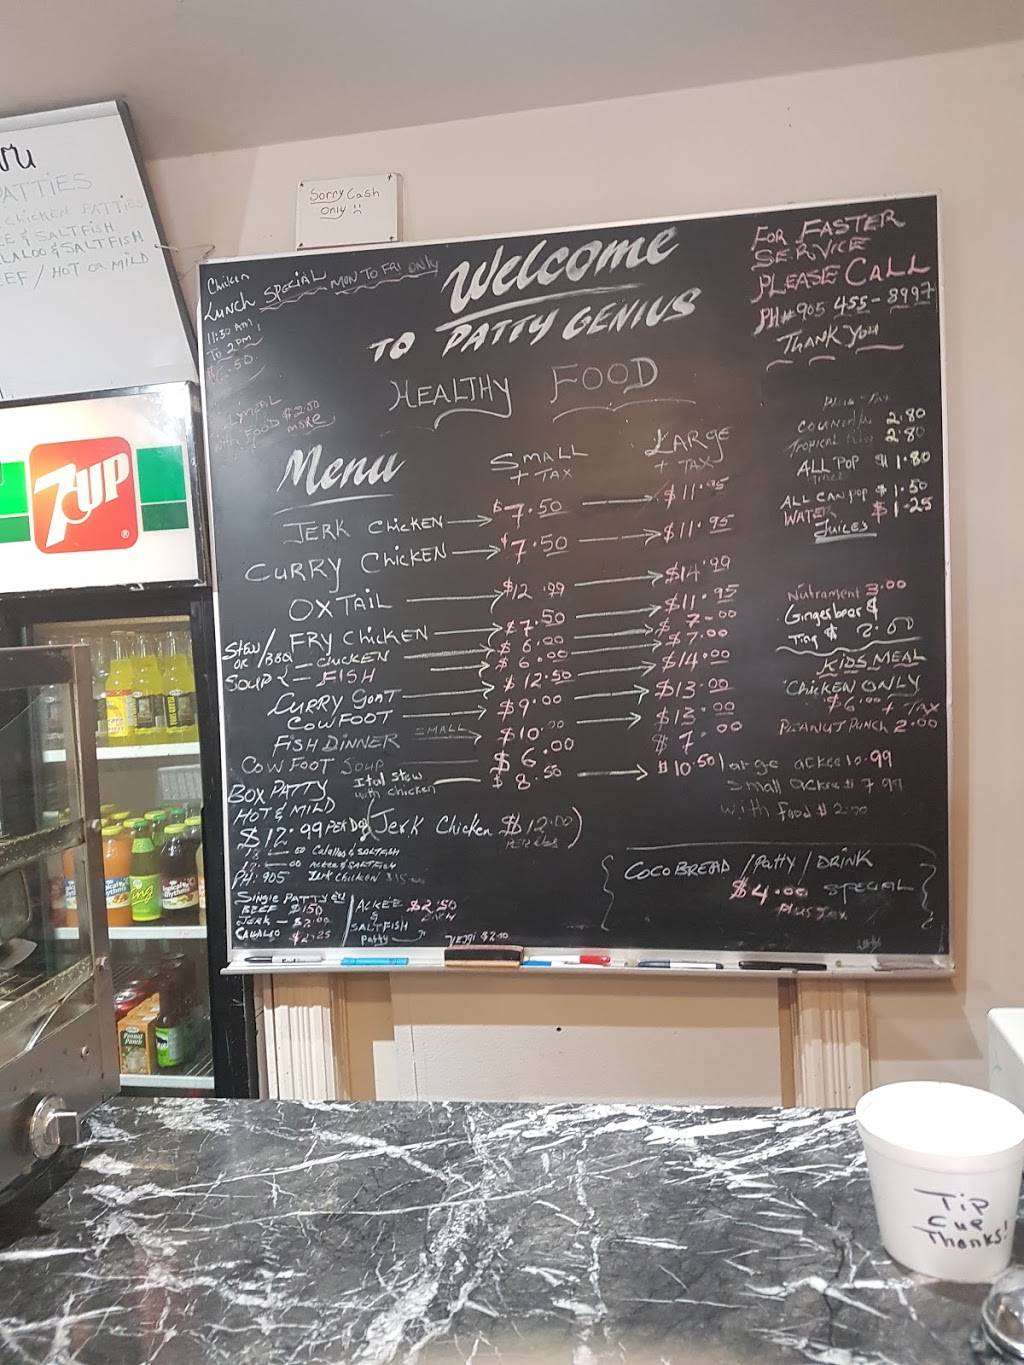 PATTIES
CHICKEN PATTIES
& SALTFISH
& SALTFISH
HOT OR MILD
Sorry Cash
Only
7UP
Chicken
Lunch SPECIAL MON TO FRI ONLY
11:30 AM
TO 2PM
Welcome
TO PATTY GENIUS
HEALTHY FOOD
FOR FASTER
SERVICE
PLEASE CALL
PH# 905 455-8997
THANK YOU
with FOOD $2.50
more
Menu
SMALL + TAX
LARGE + TAX
JERK CHICKEN $7.50 $11.95
CURRY CHICKEN $7.50 $11.95
OXTAIL $12.99 $14.99
STEW OR / BBQ / FRY CHICKEN $7.50 $11.95
SOUP - CHICKEN $6.00 $7.00
- FISH $6.00 $7.00
CURRY GOAT $12.50 $14.00
COWFOOT $9.00 $13.00
FISH DINNER SMALL $10.00 $13.00
COWFOOT SOUP $6.00 $7.00
Ital stew with chicken $8.50 $10.50
BOX PATTY
HOT & MILD
$12.99 PER DOZ
(Jerk Chicken $12.00)
Calaloo & SALTFISH
ACKEE & SALTFISH
PH: 905 Jerk Chicken
Single PATTY
BEEF $1.50
JERK - $2.00
CALALOO $2.25
ACKEE & SALTFISH Patty $2.50 EACH
2.80
TROPICAL 2.80
ALL POP $1.80
ALL CAN POP $1.50
WATER $1.25
Juices
Nutrament 3.00
Gingerbeer &
Ting $2.00
KIDS MEAL
CHICKEN ONLY
$6.00 + TAX
PEANUT PUNCH 2.00
large ackee 10.99
Small ackee $7.99
with food
COCOBREAD / Patty / DRINK
$4.00 SPECIAL
PLUS TAX
Peanut
Punch
Tip
Cup
Thanks!